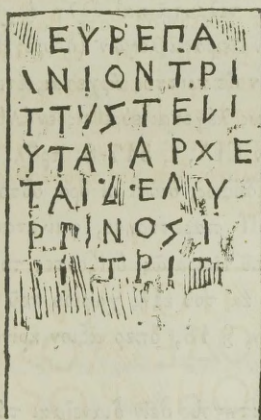 ΕΥΡΕΠΑ
\ΝΙΟΝΤΡΙ
ΤΤΥSΤΕLΙ
ΥΤΑΙΑΡΧΕ
ΤΑΙΔΕΛΥ
ΝΟSΙ
ΤΡΙΤ